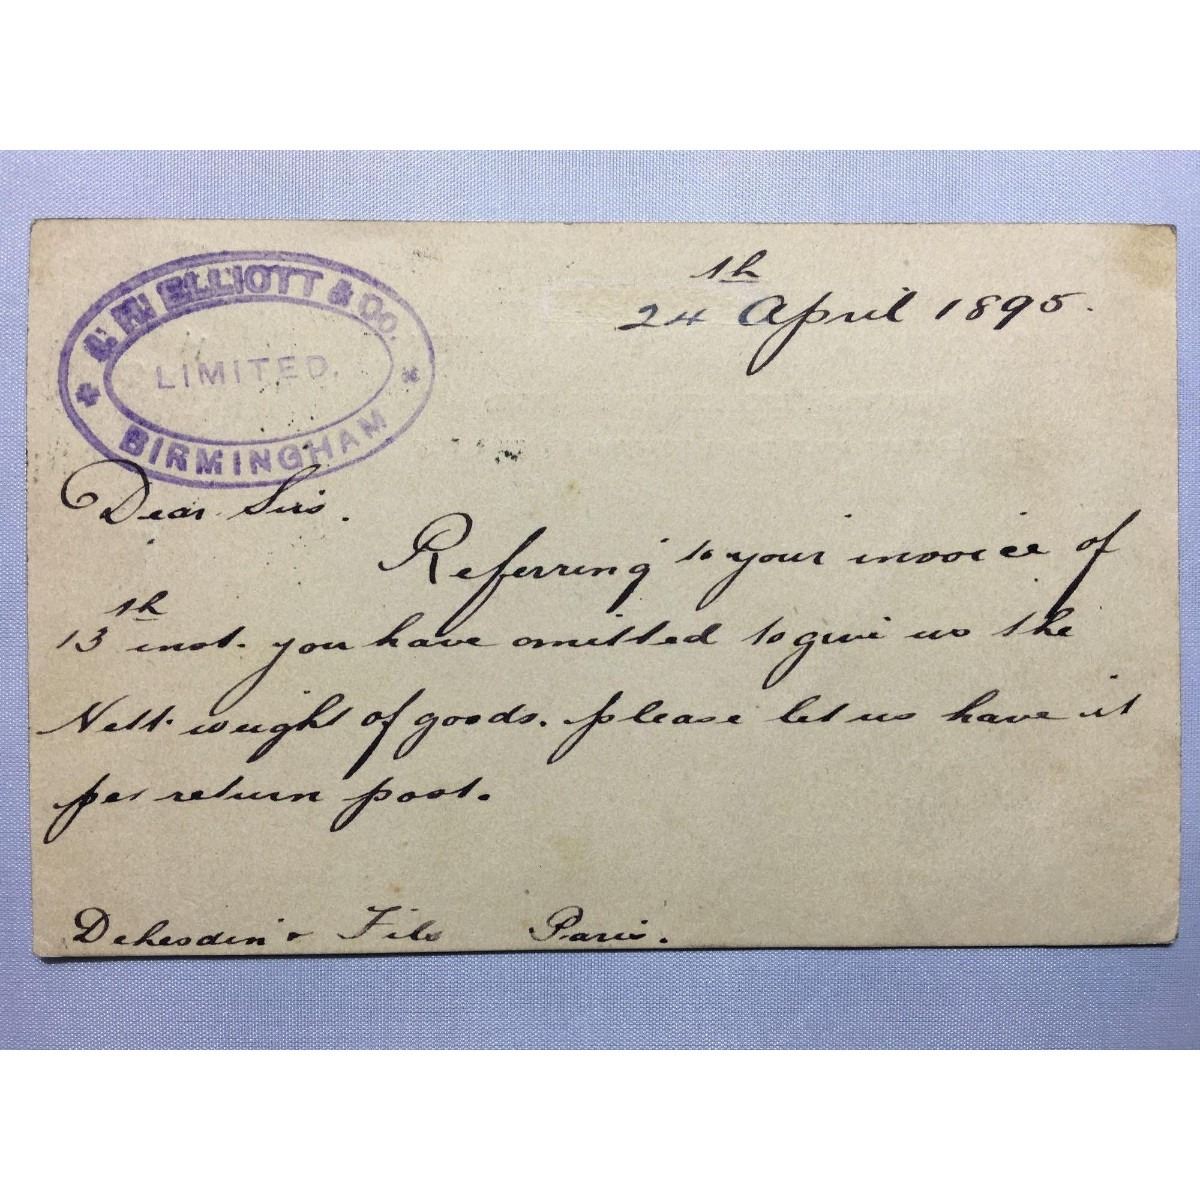 ELLIOTT & Co.
LIMITED.
BIRMINGHAM
24th April 1895.
Dear Sirs.
Referring to your invoice of
13th inst. you have omitted to give us the
Nett weight of goods. please let us have it
per return post.
Dehesdin & Fils Paris.